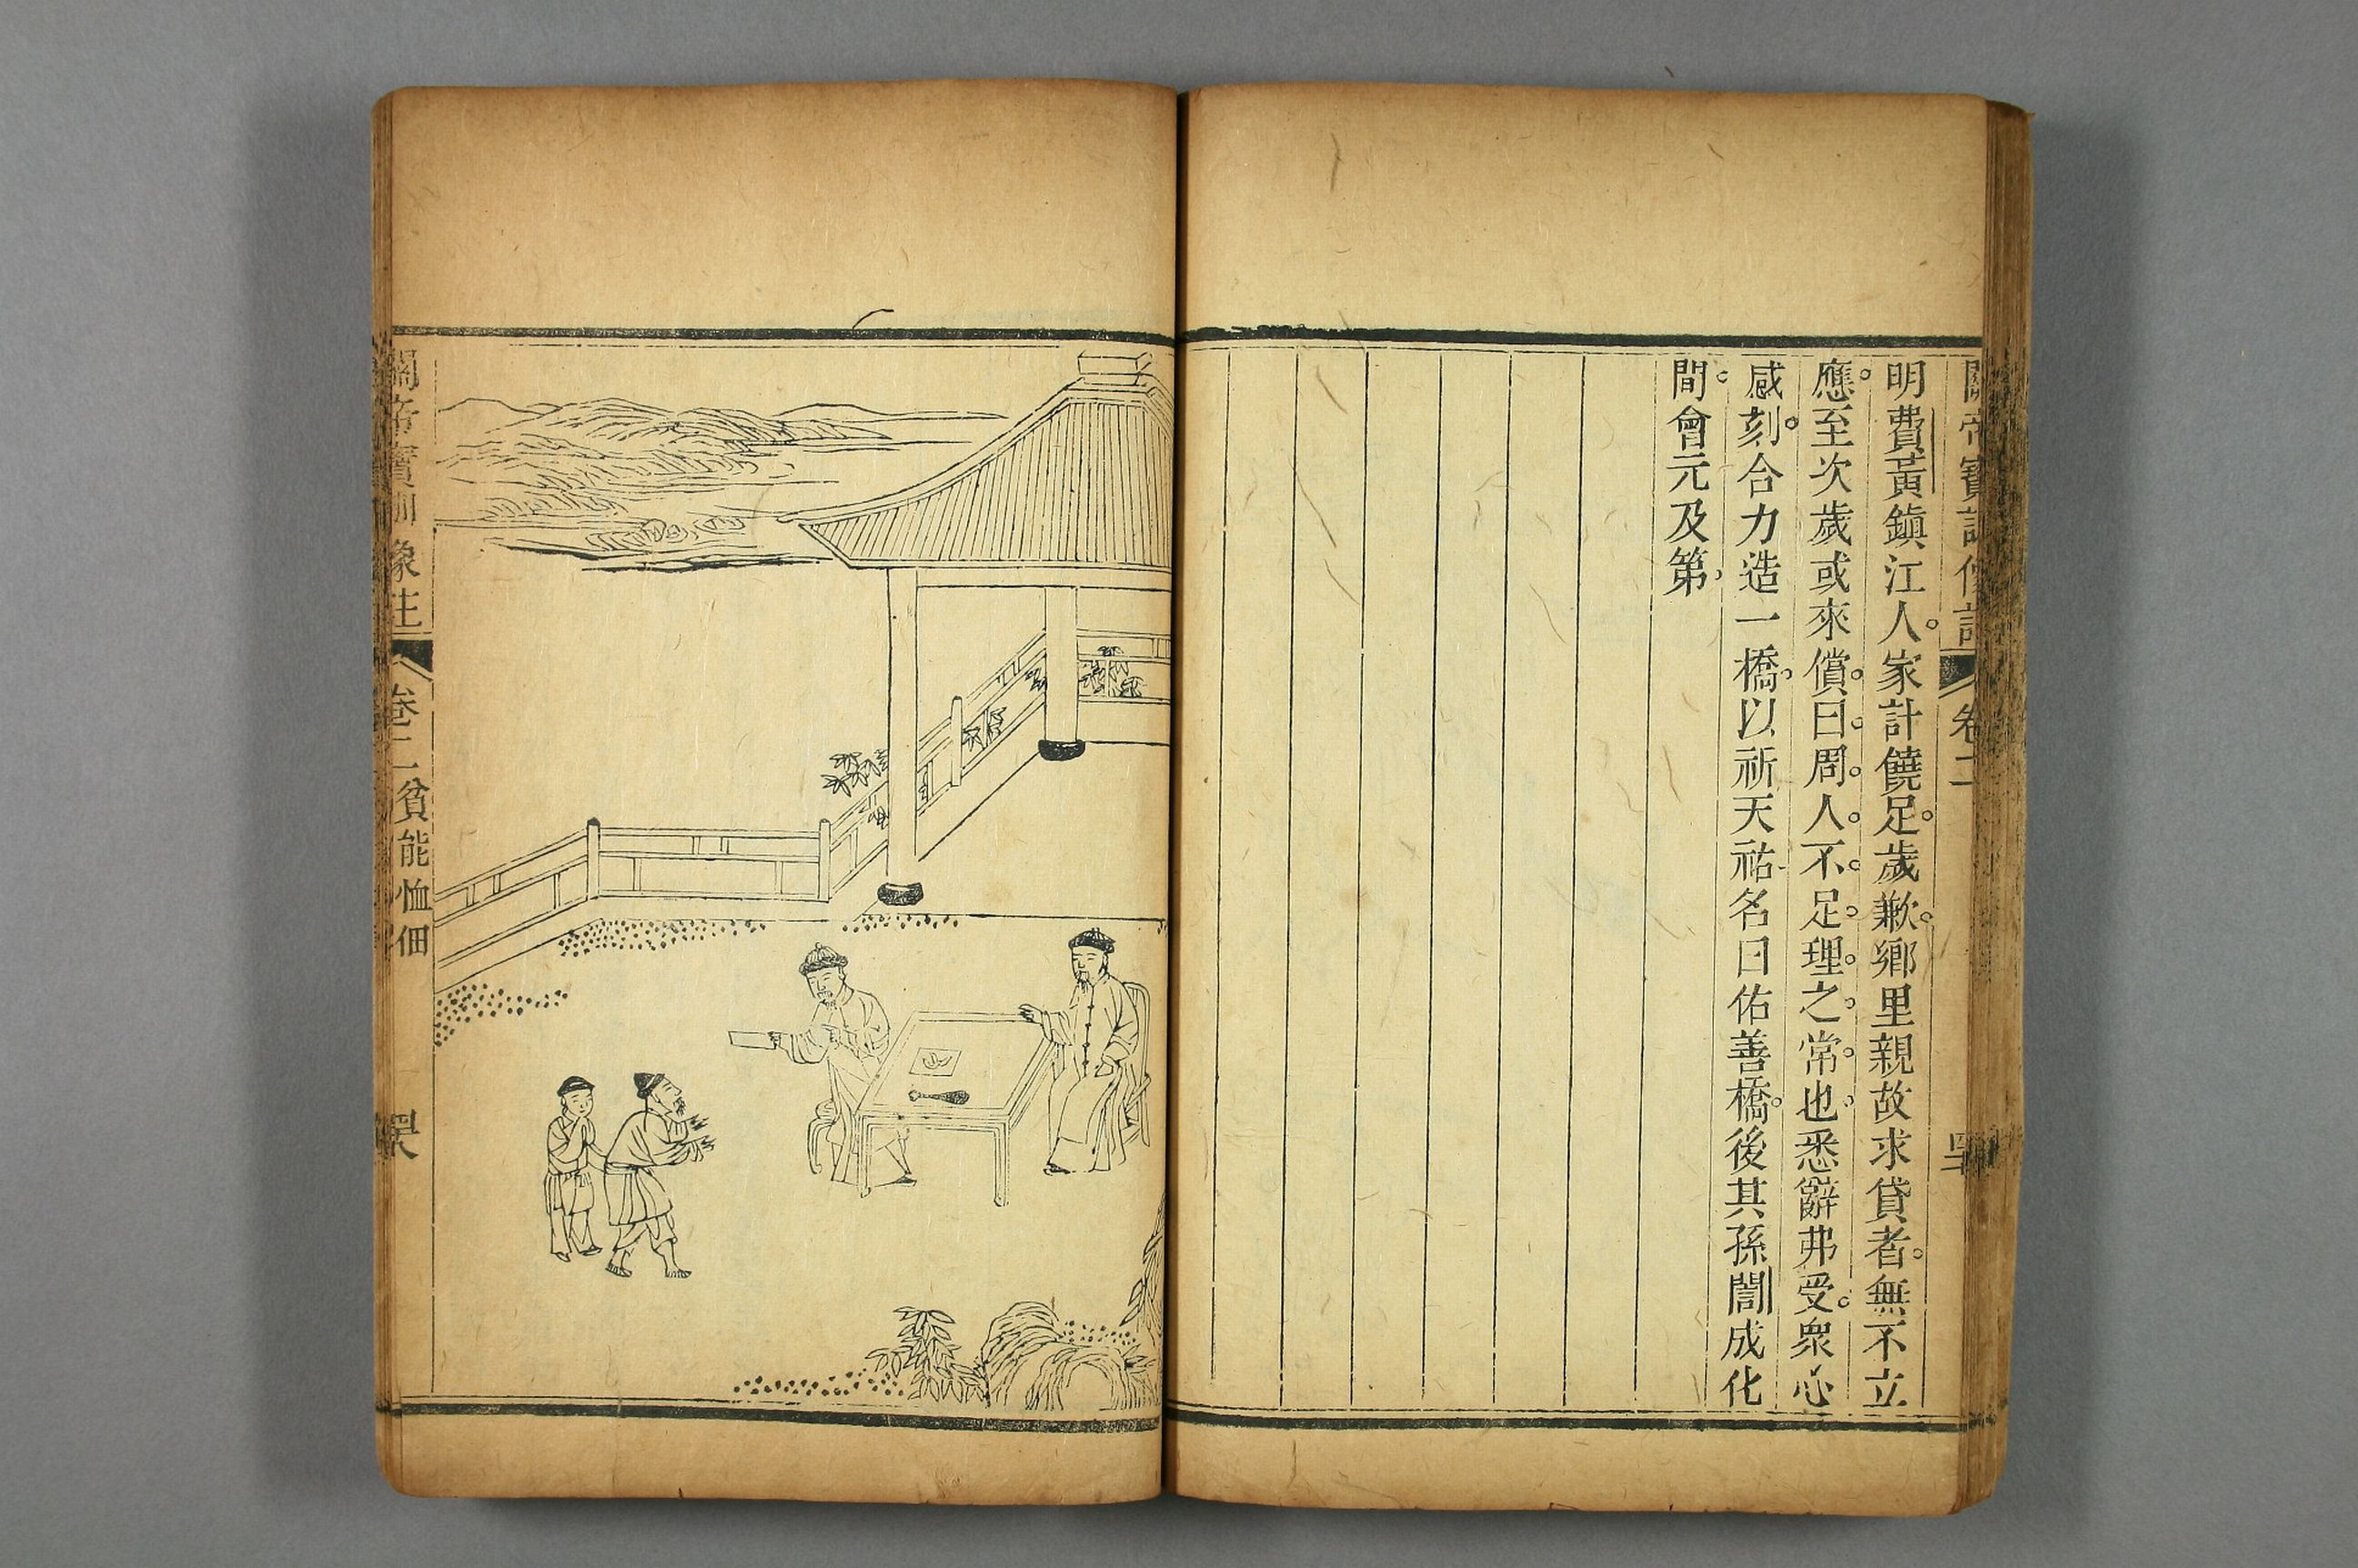 關帝寶訓像註 卷二 四十五
明費黃鎮江人家計饒足歲歉鄉里親故求貸者無不立
應至次歲或來償曰周人不足理之常也悉辭弗受眾心
感刻合力造一橋以祈天祐名曰佑善橋後其孫誾成化
間會元及第
關帝寶訓像註 卷二 貧能恤佃